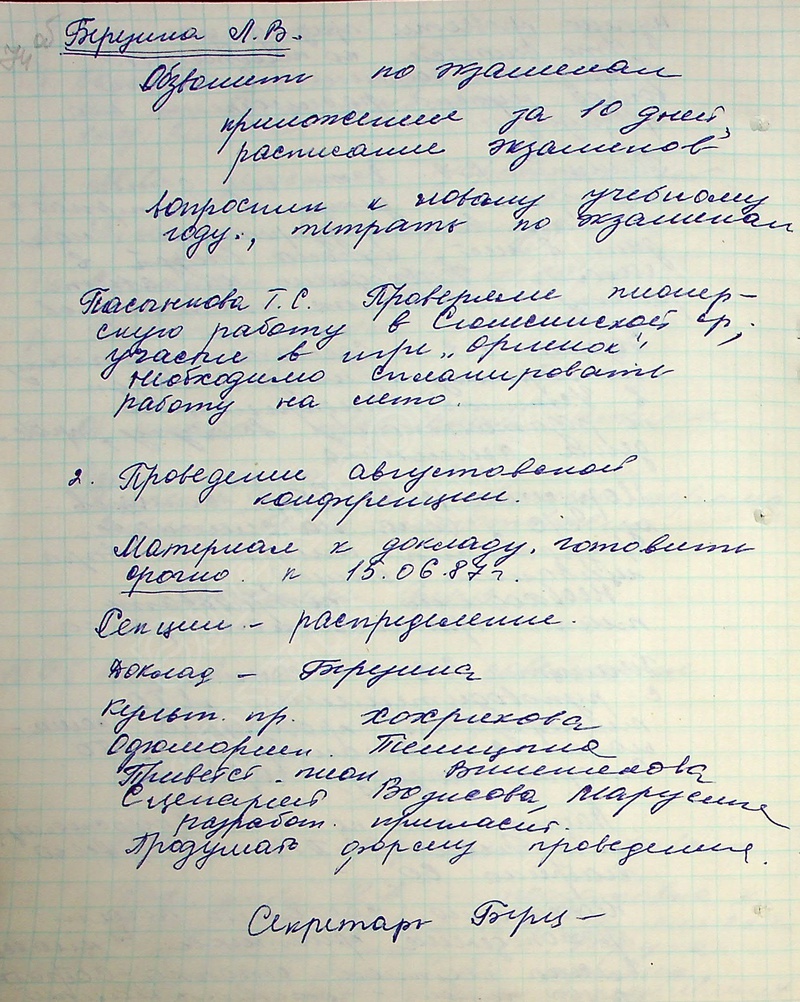 74 об
Березина Л.В.
Обзвонить по экзаменам
приложение за 10 дней,
расписание экзаменов
вопросник к новому учебному
году., тетрать по экзаменам
Пасынкова Т.С. Проверяли пионер-
скую работу в Сюмсинской ср,
участие в игре „Орленок"
необходимо спланировать
работу на лето.
2. Проведение августовской
конференции.
Материал к докладу. готовить
срочно. к 15.06.87г.
Секции - распределение.
Доклад - Березина
Культ. пр. Хохрякова
Оформлен.
Приветст. пион
Сценарий
разработ. пригласит.
Продумать форму проведения.
Секретарь Берез-